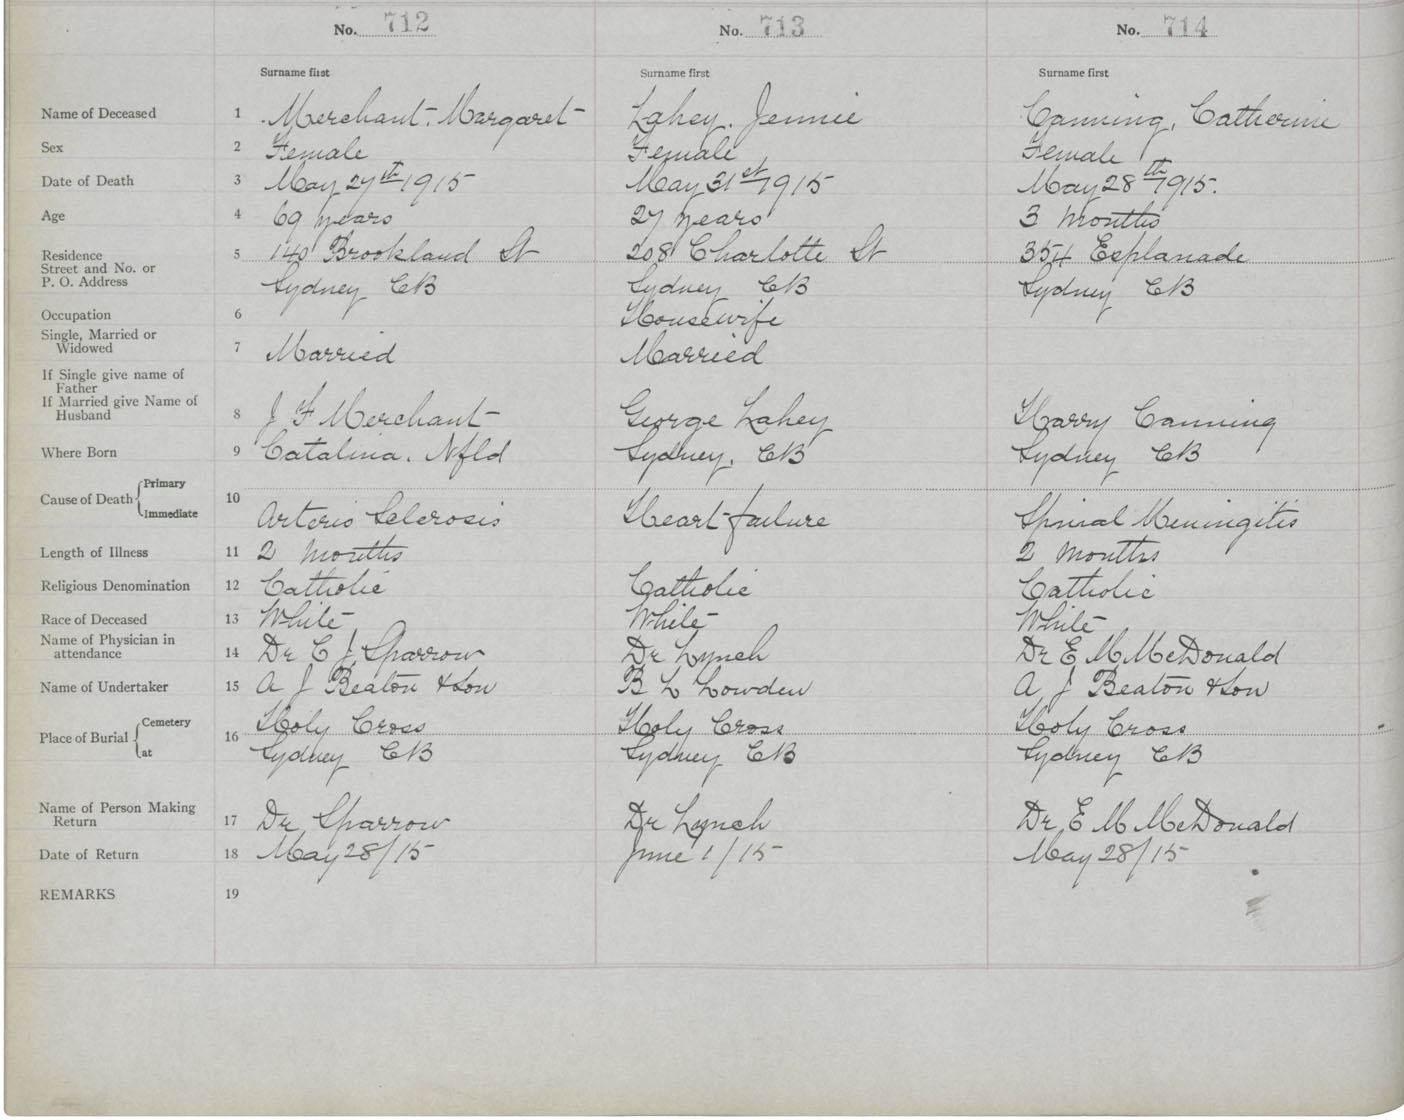 No. 712 No. 713 No. 714
Surname first Surname first Surname first
Name of Deceased 1 Merchant. Margaret Lahey. Jennie Canning, Catherine
Sex 2 Female Female Female
Date of Death 3 May 27th 1915 May 31st 1915 May 28th 1915.
Age 4 69 years 27 years 3 Months
Residence 5 140 Brookland St 208 Charlotte St 354 Esplanade
Street and No. or
P. O. Address Sydney CB Sydney CB Sydney CB
Occupation 6 Housewife
Single, Married or
Widowed 7 Married Married
If Single give name of
Father
If Married give Name of
Husband 8 J F Merchant George Lahey Harry Canning
Where Born 9 Catalina. Nfld Sydney. CB Sydney CB
Cause of Death Primary
Immediate 10 Arterio Sclerosis Heart failure Spinal Meningitis
Length of Illness 11 2 Months 2 Months
Religious Denomination 12 Catholic Catholic Catholic
Race of Deceased 13 White White White
Name of Physician in
attendance 14 Dr C J Sparrow Dr Lynch Dr E M McDonald
Name of Undertaker 15 A J Beaton & Son B L Lowden A J Beaton & Son
Place of Burial Cemetery 16 Holy Cross Holy Cross Holy Cross
at Sydney CB Sydney CB Sydney CB
Name of Person Making
Return 17 Dr Sparrow Dr Lynch Dr E M McDonald
Date of Return 18 May 28/15 June 1/15 May 28/15
REMARKS 19